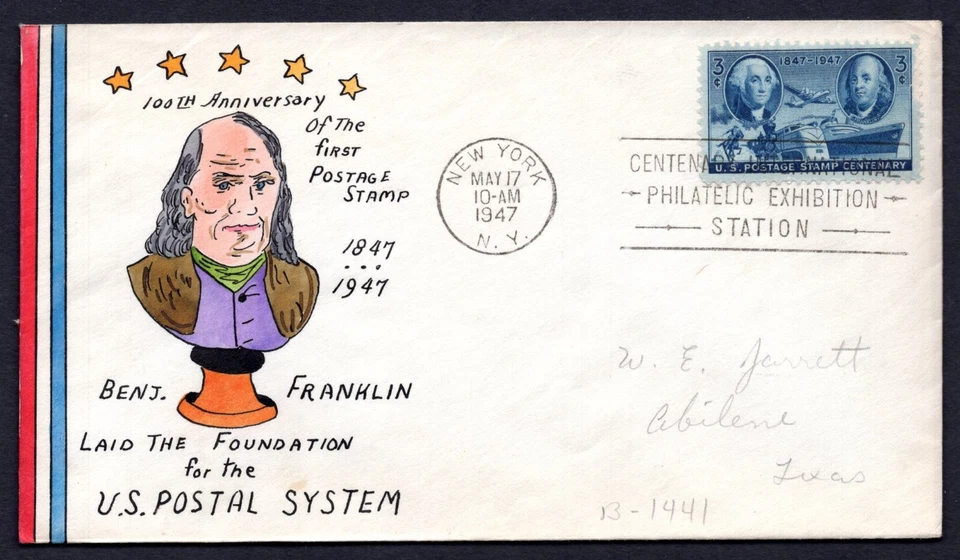 100TH Anniversary
Of The
first
POSTAGE
STAMP
1847
...
1947
BENJ. FRANKLIN
LAID THE FOUNDATION
for the
U.S. POSTAL SYSTEM
NEW YORK
MAY 17
10-AM
1947
N. Y.
3¢ 1847-1947 3¢
U.S. POSTAGE STAMP CENTENARY
CENTENARY INTERNATIONAL
PHILATELIC EXHIBITION
STATION
W. E. Jarrett
Abilene
Texas
B-1441